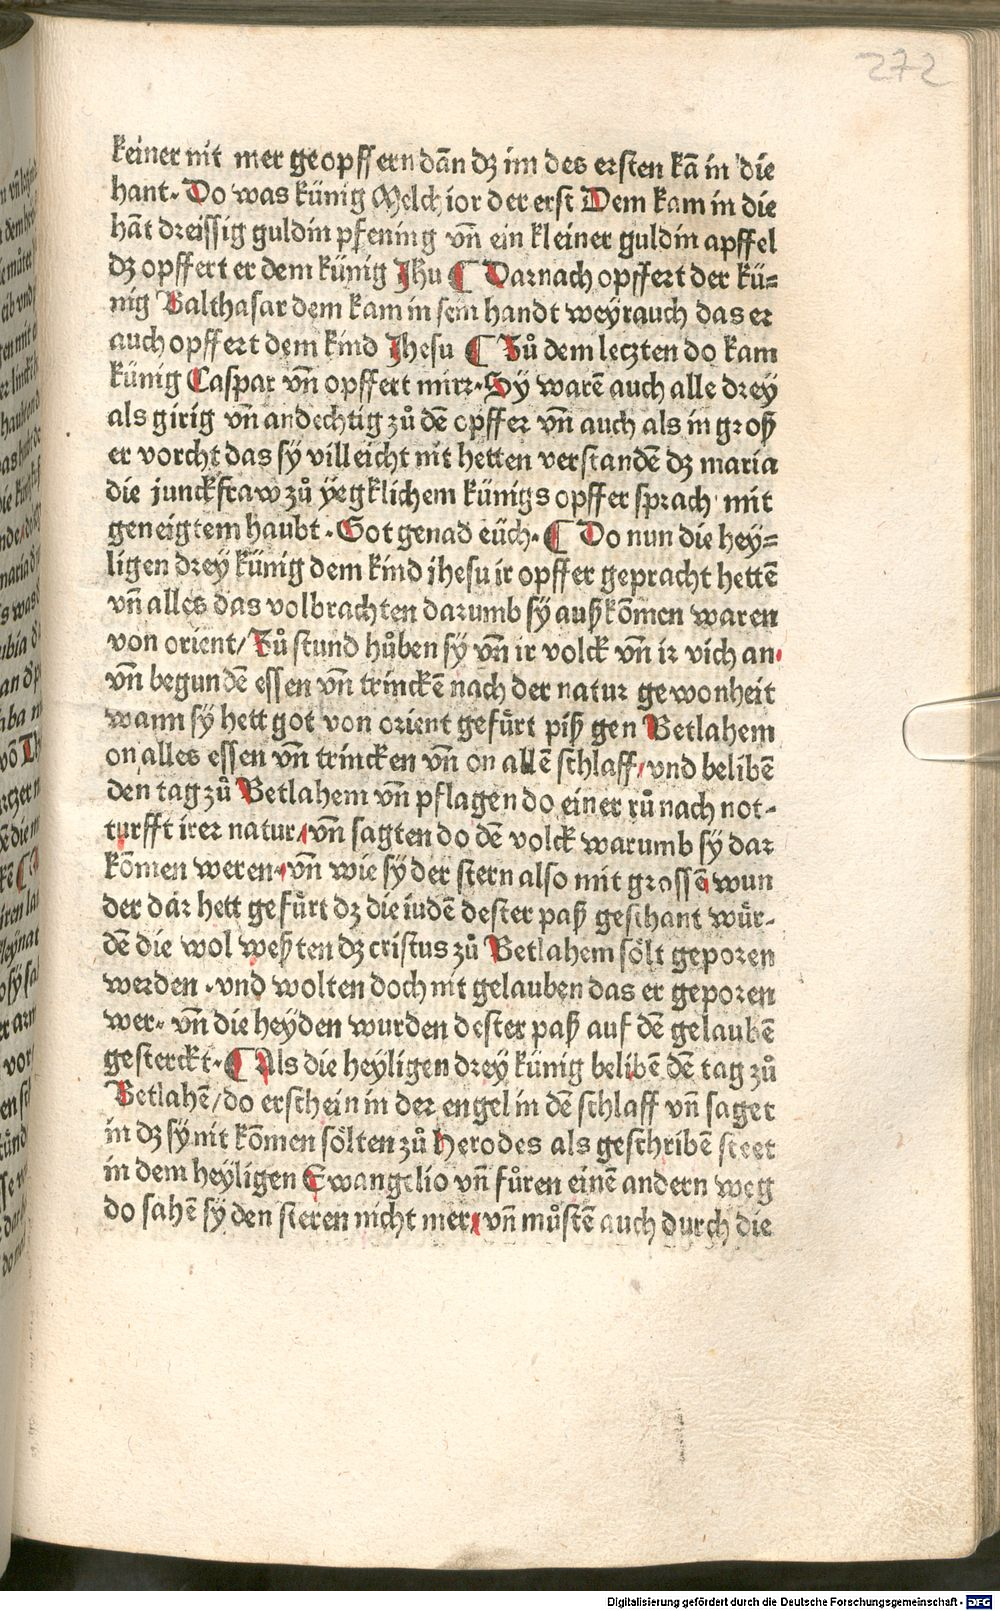 272
keiner nit mer geopffern dañ dʒ im des ersten kā in die
hant. Do was künig Melchior der erst Dem kam in die
hāt dreissig guldin pfening vñ ein kleiner guldin apffel
dʒ opffert er dem künig Jhu ¶ Darnach opffert der kü⸗
nig Balthasar dem kam in sein handt weyrauch das er
auch opffert dem kind Jhesu ¶ Zů dem letzten do kam
künig Caspar vñ opffert mirr. Sy warē auch alle drey
als girig vñ andechtig zů dē opffer vñ auch als in groß
er vorcht das sy villeicht nit hetten verstandē dʒ maria
die junckfraw zů yegklichem künigs opffer sprach mit
geneigtem haubt. Got genad eüch. ¶ Do nun die hey⸗
ligen drey künig dem kind jhesu ir opffer gepracht hettē
vñ alles das volbrachten darumb sy auß kōmen waren
von orient/ Zů stund hůben sy vñ ir volck vñ ir vich an
vñ begundē essen vñ trinckē nach der natur gewonheit
wann sy hett got von orient gefůrt piß gen Betlahem
on alles essen vñ trincken vñ on allē schlaff/ vnd belibē
den tag zů Betlahem vñ pflagen do einer rů nach not⸗
turfft irer natur/ vñ sagten do dē volck warumb sy dar
kōmen weren. vñ wie sy der stern also mit grossē wun
der dar hett gefůrt dʒ die iudē dester paß geschant wůr⸗
dē die wol weßten dʒ cristus zů Betlahem sölt geporen
werden. vnd wolten doch nit gelauben das er geporen
wer. vñ die heyden wurden dester paß auf dē gelaubē
gesterckt. ¶ Als die heyligen drey künig belibē dē tag zů
Betlahē/ do erschein in der engel in dē schlaff vñ saget
in dʒ sy nit kōmen sölten zů Herodes als geschribē steet
in dem heyligen Ewangelio vñ fůren einē andern weg
do sahē sy den steren nicht mer/ vñ můstē auch durch die
Digitalisierung gefördert durch die Deutsche Forschungsgemeinschaft - DFG